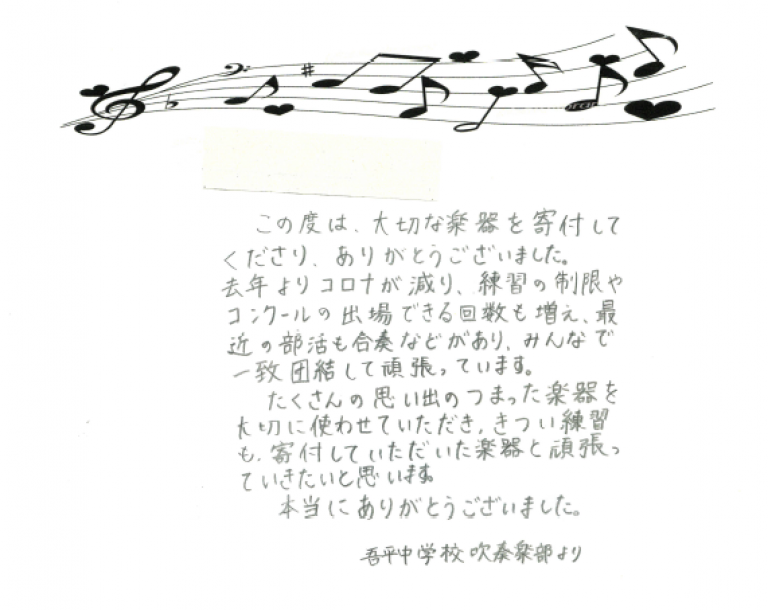 この度は、大切な楽器を寄付して
くださり、ありがとうございました。
去年よりコロナが減り、練習の制限や
コンクールの出場できる回数も増え、最
近の部活も合奏などがあり、みんなで
一致団結して頑張っています。
たくさんの思い出のつまった楽器を
大切に使わせていただき、きつい練習
も、寄付していただいた楽器と頑張っ
ていきたいと思います。
本当にありがとうございました。
吾平中学校吹奏楽部より